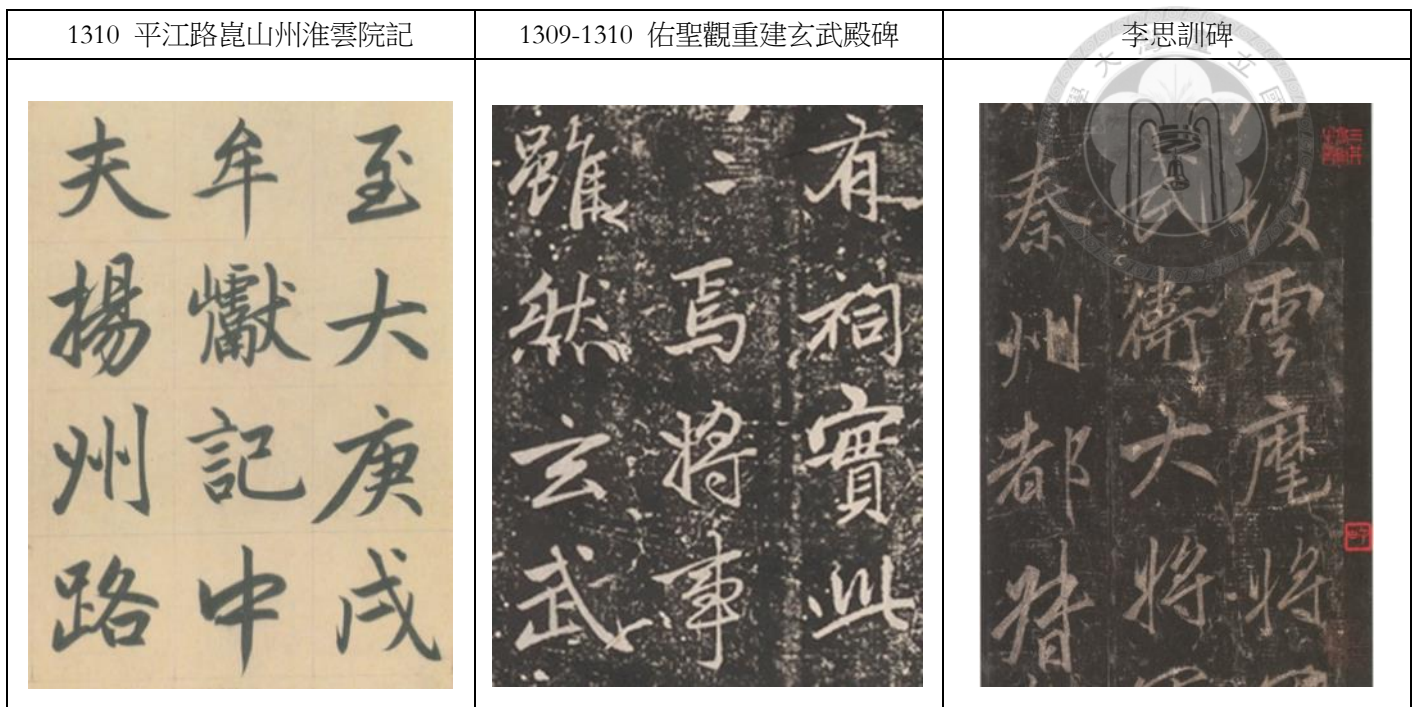 1310 平江路崑山州淮雲院記
1309-1310 佑聖觀重建玄武殿碑
李思訓碑
至大庚戌
牟巘記中
夫揚州路
有祠實此
焉將事
雖然玄武
故雲麾將
武衛大將
秦州都督